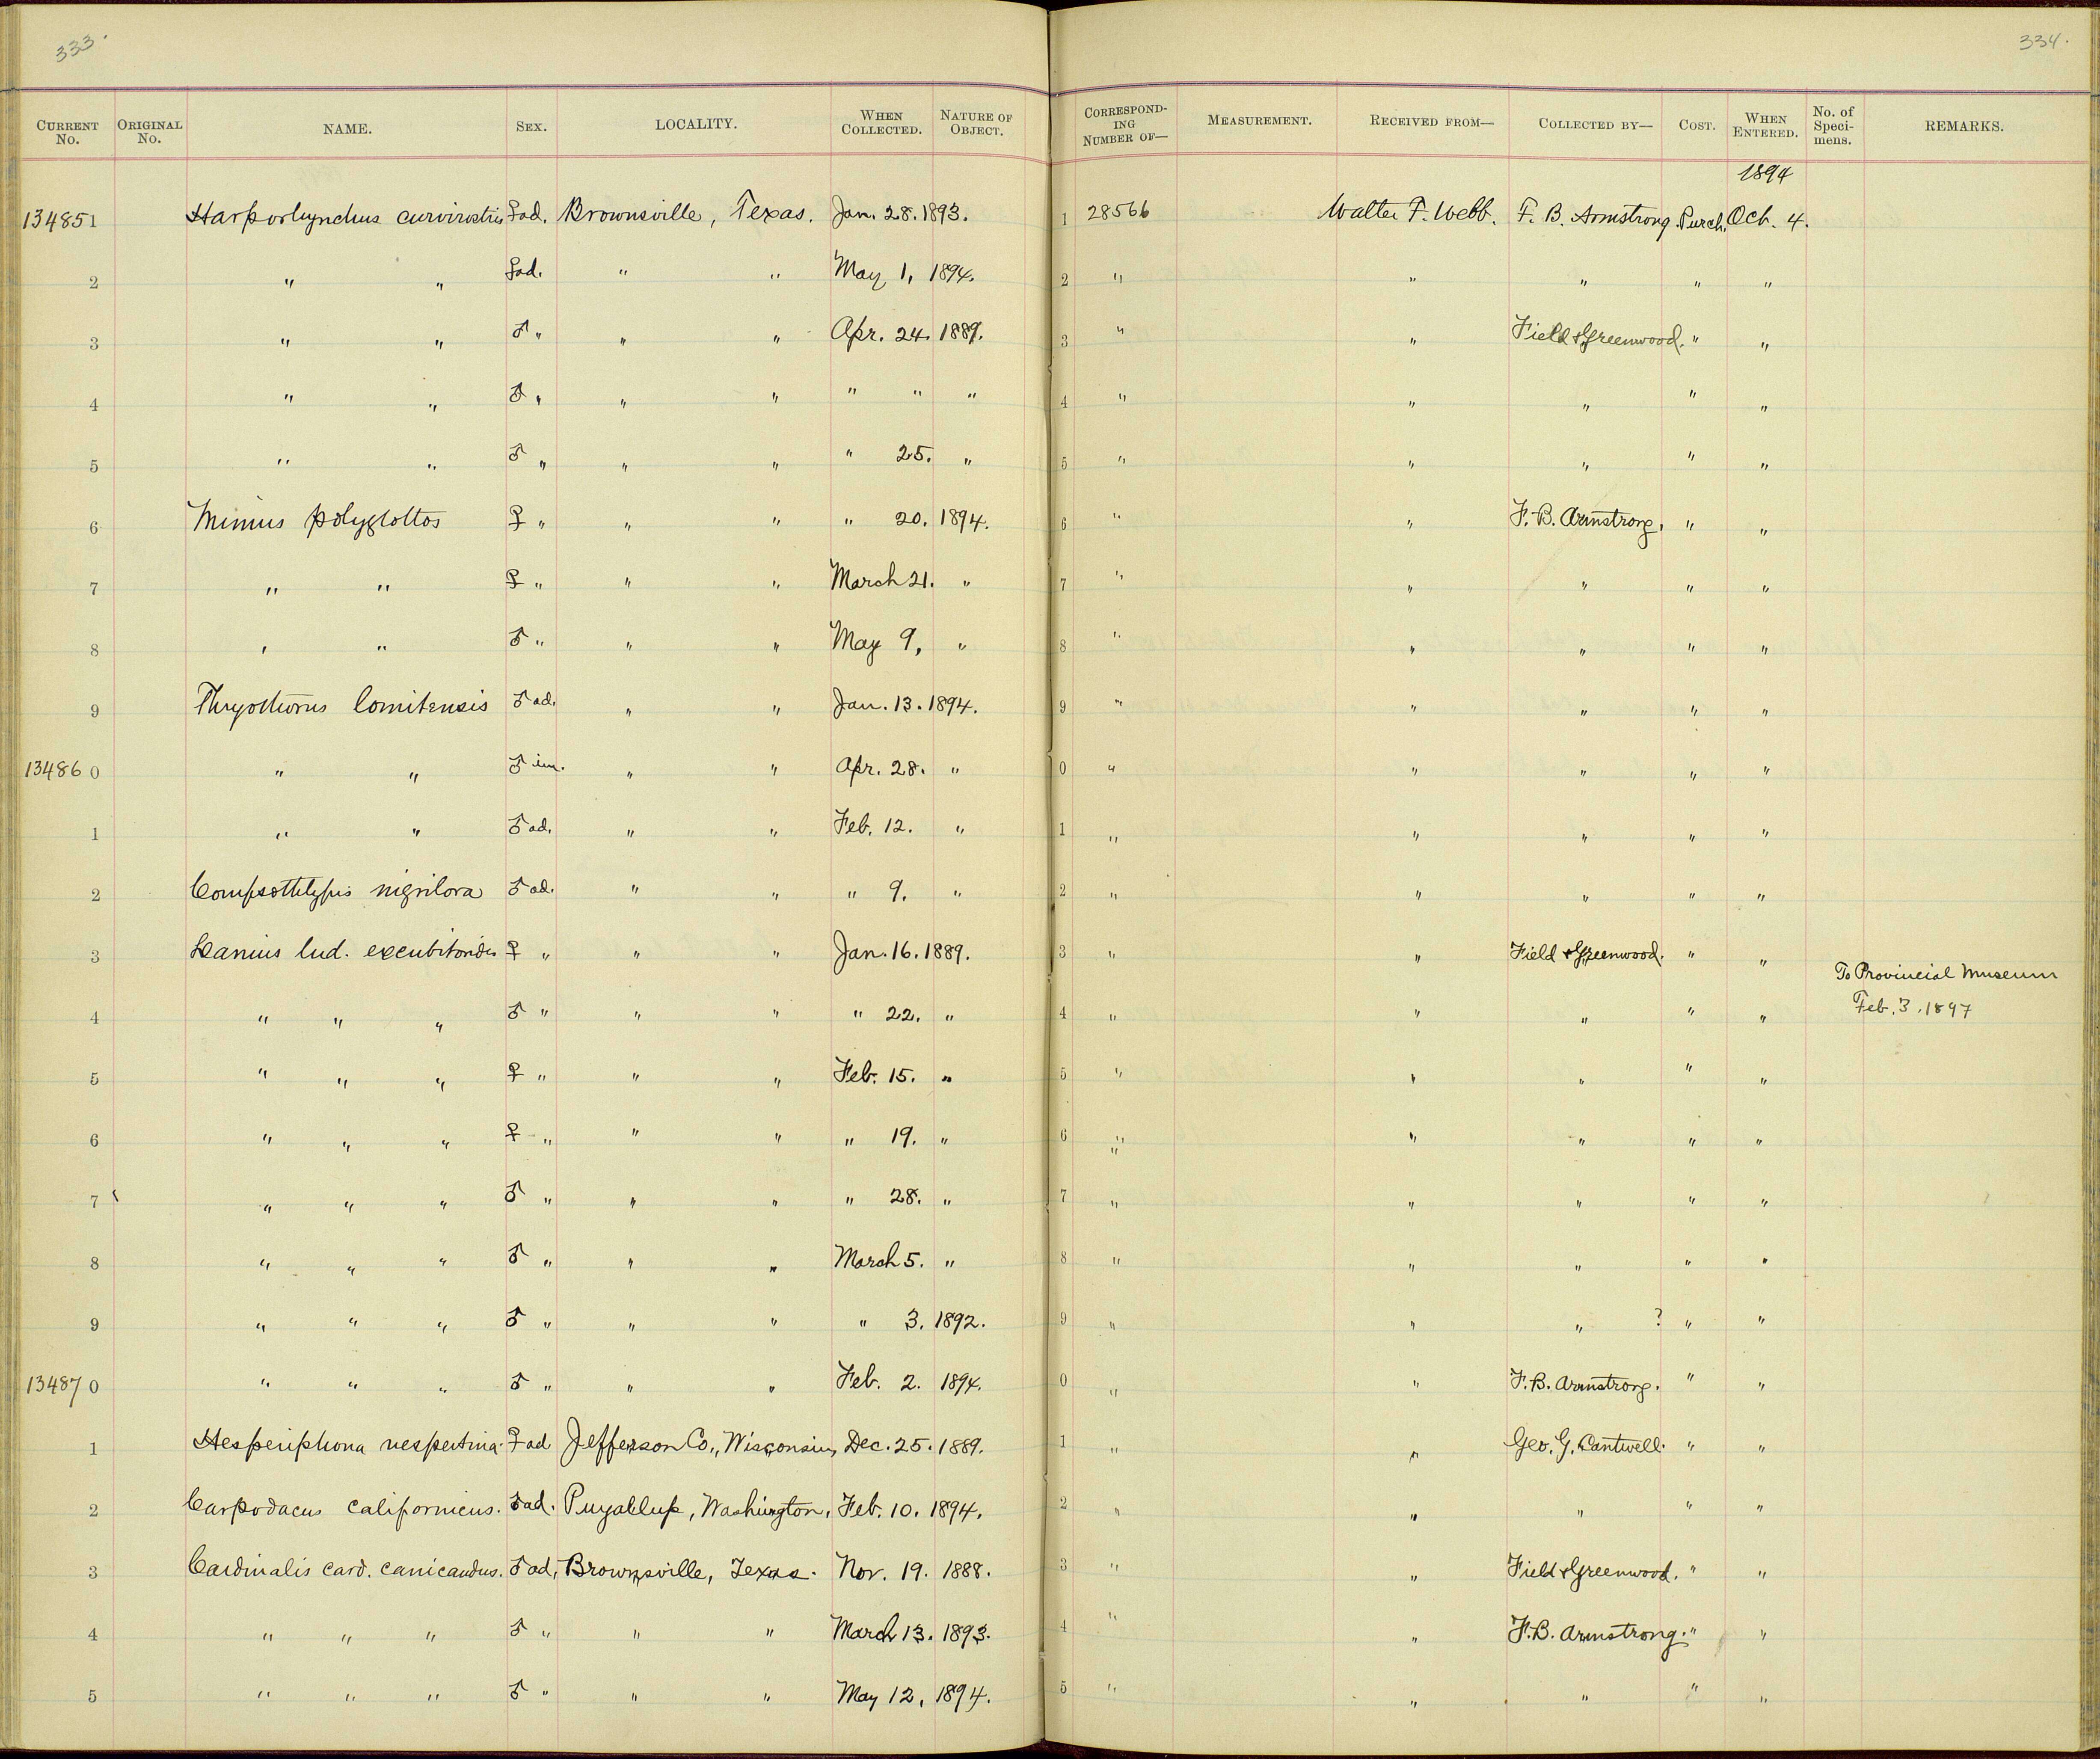 333.
334.
CURRENT No. ORIGINAL No. NAME. SEX. LOCALITY. WHEN COLLECTED. NATURE OF OBJECT. CORRESPONDING NUMBER OF— MEASUREMENT. RECEIVED FROM— COLLECTED BY— COST. WHEN ENTERED. No. of Specimens. REMARKS.
1894
134851 Harporhynchus curvirostris ♀ad. Brownsville, Texas. Jan. 28. 1893. 1 28566 Walter F. Webb. F. B. Armstrong. Purch. Oct. 4.
2 " " ♀ad. " " May 1, 1894. 2 " " " " "
3 " " ♂ " " " Apr. 24. 1889. 3 " " Field & Greenwood. " "
4 " " ♂ " " " " " " 4 " " " " "
5 " " ♂ " " " " 25. " 5 " " " " "
6 Mimus polyglottos ♀ " " " " 20. 1894. 6 " " F. B. Armstrong. " "
7 " " ♀ " " " March 21. " 7 " " " " "
8 " " ♂ " " " May 9, " 8 " " " " "
9 Thryothorus lomitensis ♂ ad. " " Jan. 13. 1894. 9 " " " " "
134860 " " ♂ im. " " Apr. 28. " 0 " " " " "
1 " " ♂ ad. " " Feb. 12. " 1 " " " " "
2 Compsothlypis nigrilora ♂ ad. " " " 9. " 2 " " " " "
3 Lanius lud. excubitorides ♀ " " " Jan. 16. 1889. 3 " " Field & Greenwood. " "
To Provincial Museum
4 " " " ♂ " " " " 22. " 4 " " " " " Feb. 3. 1897
5 " " " ♀ " " " Feb. 15. " 5 " " " " "
6 " " " ♀ " " " " 19. " 6 " " " " "
7 " " " ♂ " " " " 28. " 7 " " " " "
8 " " " ♂ " " " March 5. " 8 " " " " "
9 " " " ♂ " " " " 3. 1892. 9 " " " ? " "
134870 " " " ♂ " " " Feb. 2. 1894. 0 " " F. B. Armstrong. " "
1 Hesperiphona vespertina. ♀ ad Jefferson Co., Wisconsin, Dec. 25. 1889. 1 " " Geo. G. Cantwell. " "
2 Carpodacus californicus. ♂ ad. Puyallup, Washington, Feb. 10. 1894. 2 " " " " "
3 Cardinalis card. canicaudus. ♂ ad, Brownsville, Texas. Nov. 19. 1888. 3 " " Field & Greenwood. " "
4 " " " ♂ " " " March 13. 1893. 4 " " F. B. Armstrong. " "
5 " " " ♂ " " " May 12, 1894. 5 " " " " "